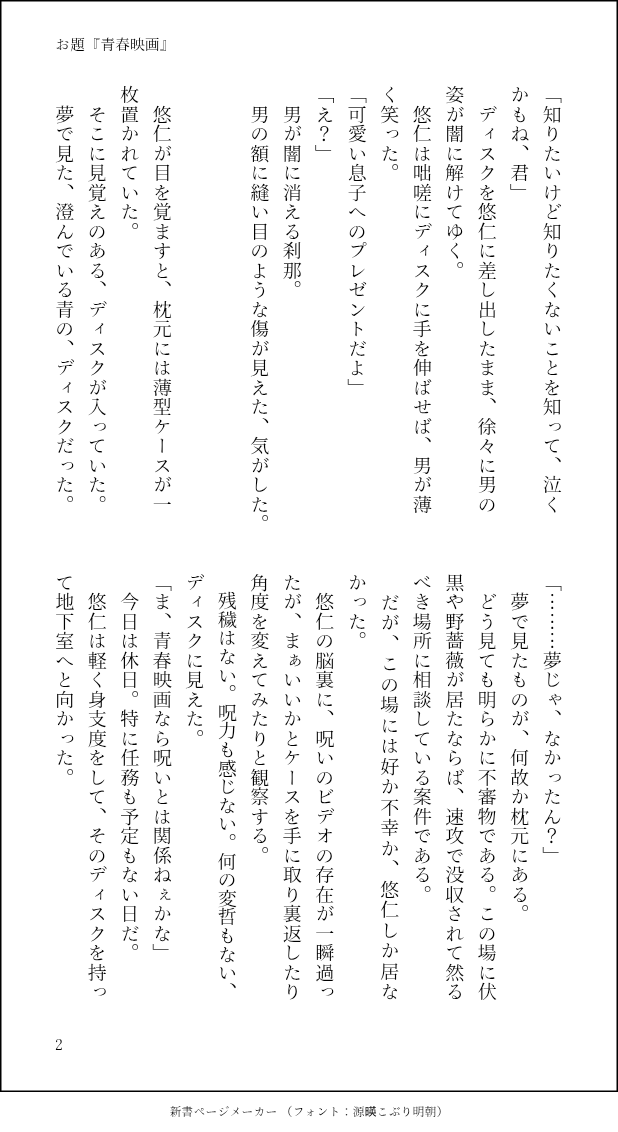 お題『青春映画』
「知りたいけど知りたくないことを知って、泣く
かもね、君」
　ディスクを悠仁に差し出したまま、徐々に男の
姿が闇に解けてゆく。
　悠仁は咄嗟にディスクに手を伸ばせば、男が薄
く笑った。
「可愛い息子へのプレゼントだよ」
「え？」
　男が闇に消える刹那。
　男の額に縫い目のような傷が見えた、気がした。
　悠仁が目を覚ますと、枕元には薄型ケースが一
枚置かれていた。
　そこに見覚えのある、ディスクが入っていた。
　夢で見た、澄んでいる青の、ディスクだった。
「………夢じゃ、なかったん？」
　夢で見たものが、何故か枕元にある。
　どう見ても明らかに不審物である。この場に伏
黒や野薔薇が居たならば、速攻で没収されて然る
べき場所に相談している案件である。
　だが、この場には好か不幸か、悠仁しか居な
かった。
　悠仁の脳裏に、呪いのビデオの存在が一瞬過っ
たが、まぁいいかとケースを手に取り裏返したり
角度を変えてみたりと観察する。
　残穢はない。呪力も感じない。何の変哲もない、
ディスクに見えた。
「ま、青春映画なら呪いとは関係ねぇかな」
　今日は休日。特に任務も予定もない日だ。
　悠仁は軽く身支度をして、そのディスクを持っ
て地下室へと向かった。
2
新書ページメーカー（フォント：源暎こぶり明朝）